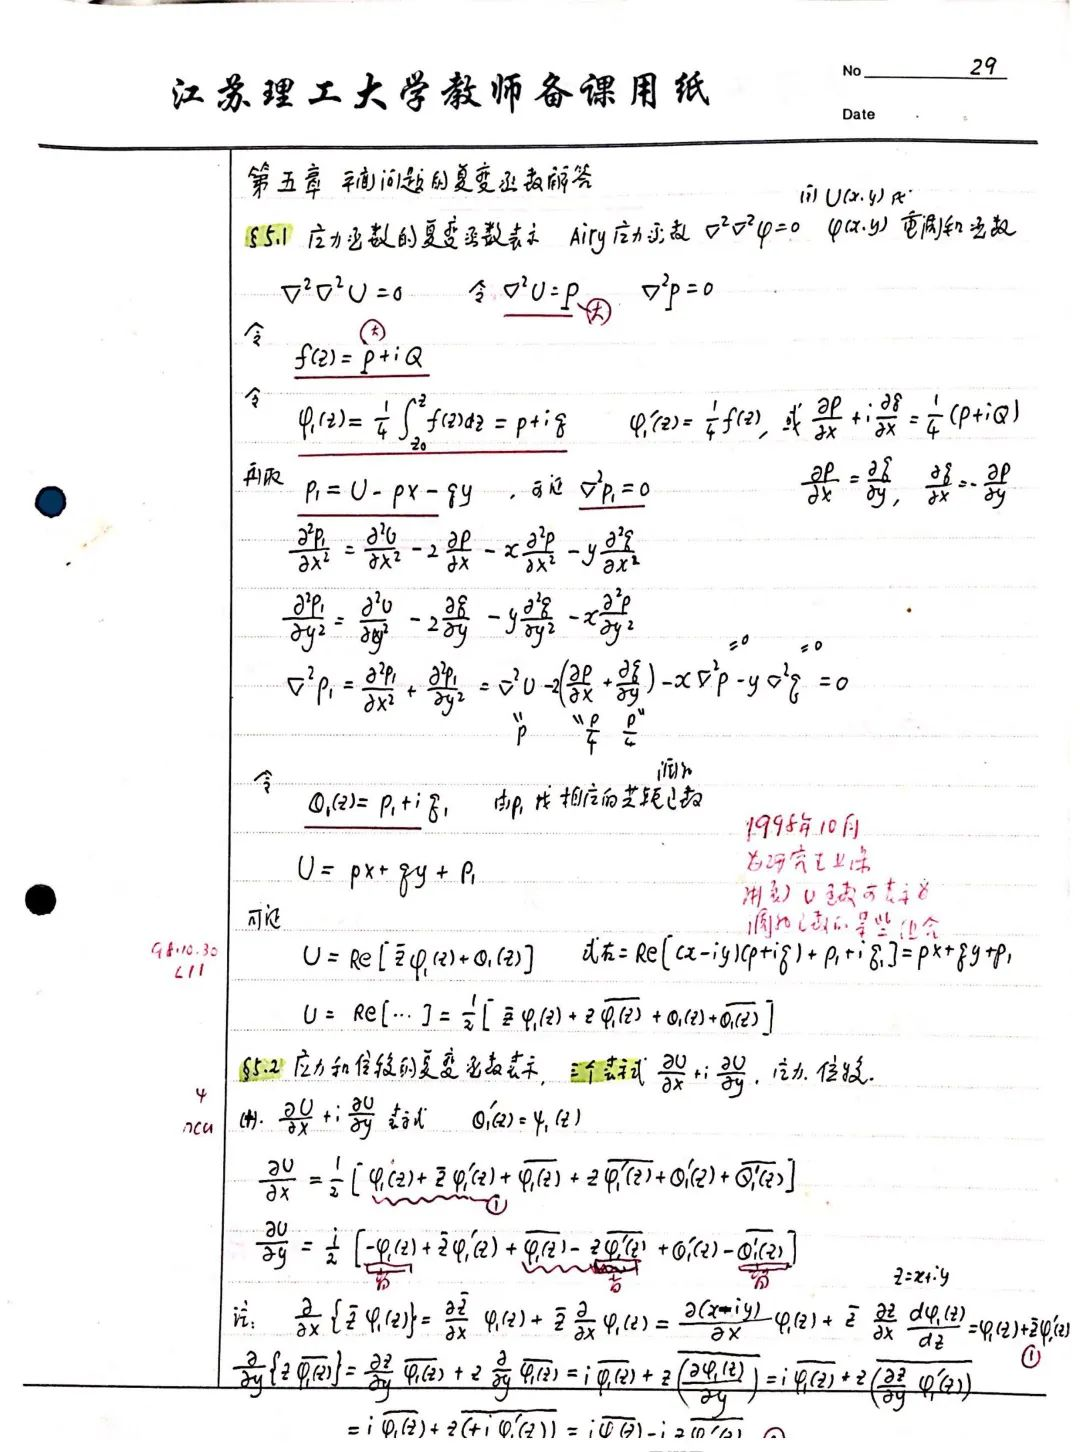 No 29
江苏理工大学教师备课用纸
Date
第五章 平面问题的复变函数解答
(ii) U(x.y)
§5.1 应力函数的复变函数表示 Airy应力函数 ∇²∇²φ=0 φ(x.y) 重调和函数
∇²∇²U=0 令 ∇²U=P ∇²P=0
大
令 大
f(z)=P+iQ
令
φ₁(z)=1/4∫_{z₀}^{z}f(z)dz=p+iq φ₁'(z)=1/4f(z), 或 ∂p/∂x+i∂q/∂x=1/4(P+iQ)
再取 p₁=U-px-qy, 可证 ∇²p₁=0 ∂p/∂x=∂q/∂y, ∂q/∂x=-∂p/∂y
∂²p₁/∂x²=∂²U/∂x²-2∂p/∂x-x∂²p/∂x²-y∂²q/∂x²
∂²p₁/∂y²=∂²U/∂y²-2∂q/∂y-y∂²q/∂y²-x∂²p/∂y²
=0 =0
∇²p₁=∂²p₁/∂x²+∂²p₁/∂y²=∇²U-2(∂p/∂x+∂q/∂y)-x∇²p-y∇²q=0
"P "P/4 P/4"
令 调和
θ₁(z)=p₁+iq₁ 由p₁找相应的共轭函数
1998年10月
为研究生上课
U=px+qy+p₁
U函数可表示为
可证 调和函数的某些组合
98.10.30
L11
U=Re[z̄φ₁(z)+θ₁(z)] 式右=Re[(x-iy)(p+iq)+p₁+iq₁]=px+qy+p₁
U=Re[…]=1/2[z̄φ₁(z)+z\overline{φ₁(z)}+θ₁(z)+\overline{θ₁(z)}]
§5.2 应力和位移的复变函数表示, 三个表示式 ∂U/∂x+i∂U/∂y, 应力, 位移.
ψ
∂U/∂x+i∂U/∂y 表示式 θ₁'(z)=ψ₁(z)
∂U/∂x=1/2[φ₁(z)+z̄φ₁'(z)+\overline{φ₁(z)}+z\overline{φ₁'(z)}+θ₁'(z)+\overline{θ₁'(z)}]
①
∂U/∂y=i/2[-φ₁(z)+z̄φ₁'(z)+\overline{φ₁(z)}-z\overline{φ₁'(z)}+θ₁'(z)-\overline{θ₁'(z)}]
z=x+iy
注: ∂/∂x{z̄φ₁(z)}=∂z̄/∂x φ₁(z)+z̄ ∂/∂x φ₁(z)=∂(x-iy)/∂x φ₁(z)+z̄ ∂z/∂x dφ₁(z)/dz=φ₁(z)+z̄φ₁'(z)
①
∂/∂y{z\overline{φ₁(z)}}=∂z/∂y \overline{φ₁(z)}+z ∂/∂y \overline{φ₁(z)}=i\overline{φ₁(z)}+z(\overline{∂φ₁(z)/∂y})=i\overline{φ₁(z)}+z(\overline{∂z/∂y φ₁'(z)})
=i\overline{φ₁(z)}+z(\overline{+iφ₁'(z)})=i\overline{φ₁(z)}-iz\overline{φ₁'(z)}